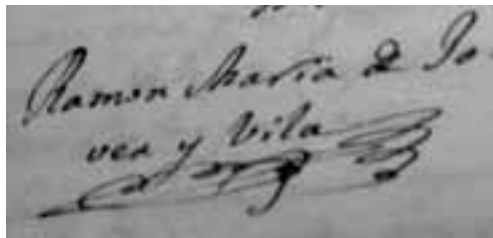 Ramon Maria de Jo-
ver y Vila